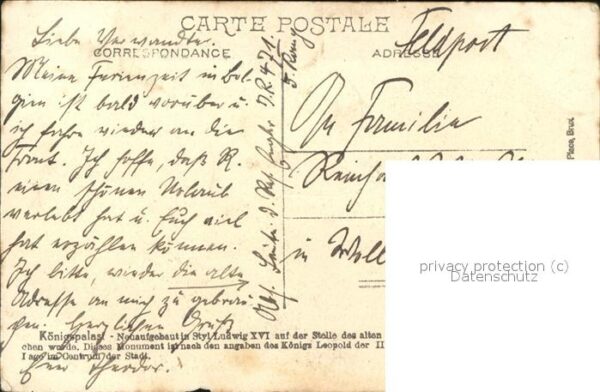 CARTE POSTALE
CORRESPONDANCE
ADRESSE
Feldpost
Liebe Verwandte.
Meine Ferienzeit in Bel-
gien ist bald vorüber u.
ich fahre wieder an die
Front. Ich hoffe, daß R.
einen schönen Urlaub
verlebt hat u. Euch viel
hat erzählen können.
Ich bitte, wieder die alte
Adresse an mich zu gebrau-
chen. Herzlichen Gruß
Euer Theodor.
An Familie
in
Königspalast - Neuaufgebaut in Styl Ludwig XVI auf der Stelle des alten
chen wurde. Dieses Monument ist nach den angaben des Königs Leopold der II
Lage im Centrum der Stadt.
Place, Brux.
privacy protection (c)
Datenschutz